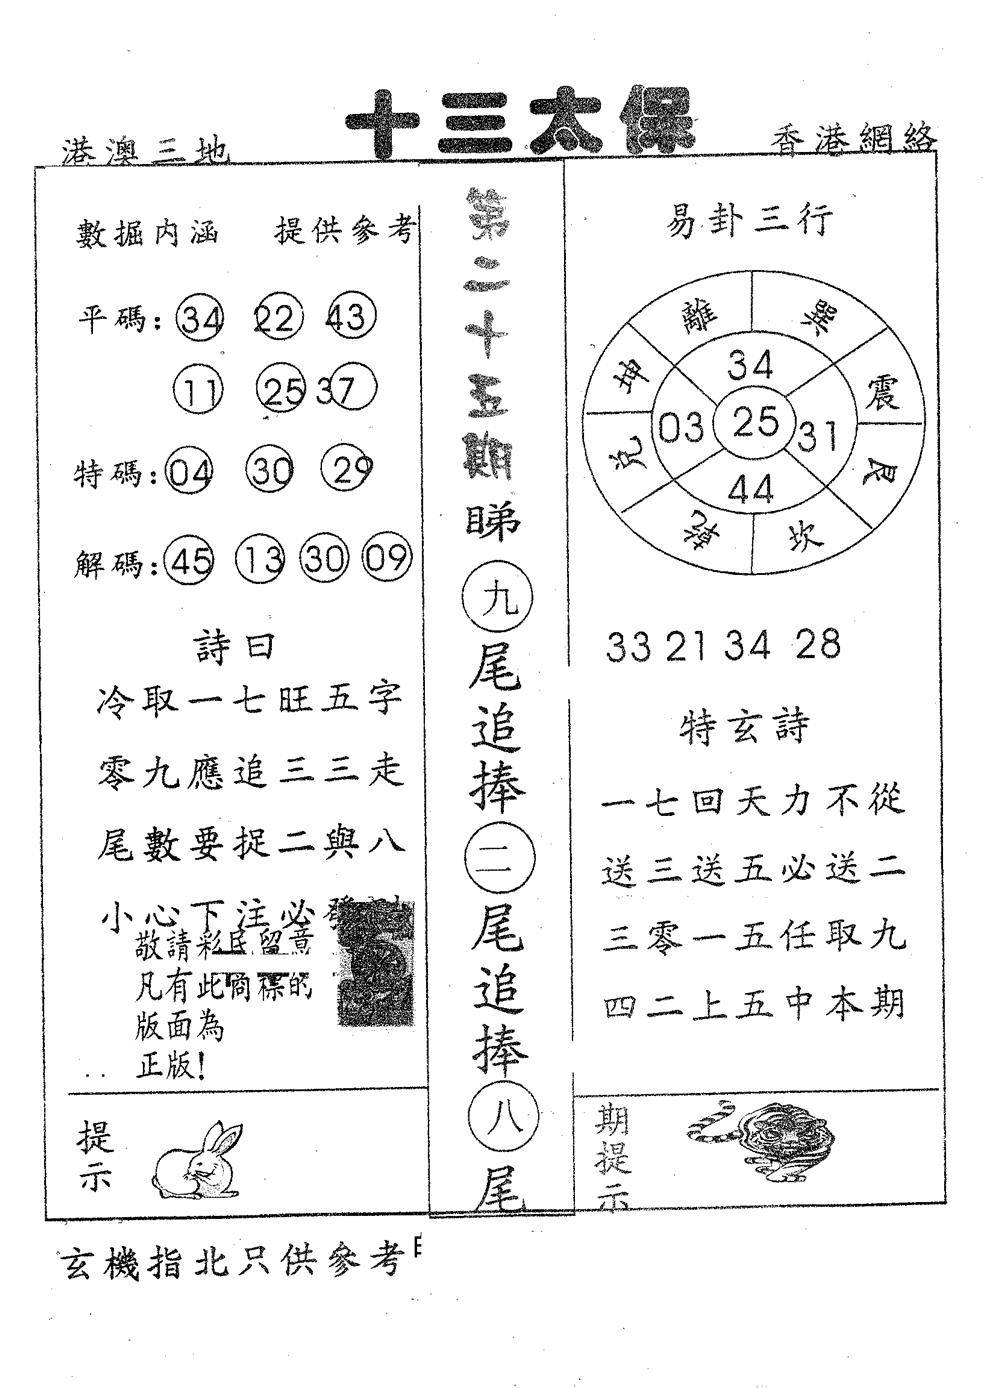 十三太保
港澳三地
香港網絡
數据内涵 提供參考
平碼: 34 22 43
11 25 37
特碼: 04 30 29
解碼: 45 13 30 09
詩曰
冷取一七旺五字
零九應追三三走
尾數要捉二與八
小心下注必發
敬請彩民留意
凡有此商標的
版面為
正版!
提示
第二十五期睇九尾追捧二尾追捧八尾
易卦三行
離 巽
坤 震
兌 艮
乾 坎
34
03 25 31
44
33 21 34 28
特玄詩
一七回天力不從
送三送五必送二
三零一五任取九
四二上五中本期
期提示
玄機指北只供參考